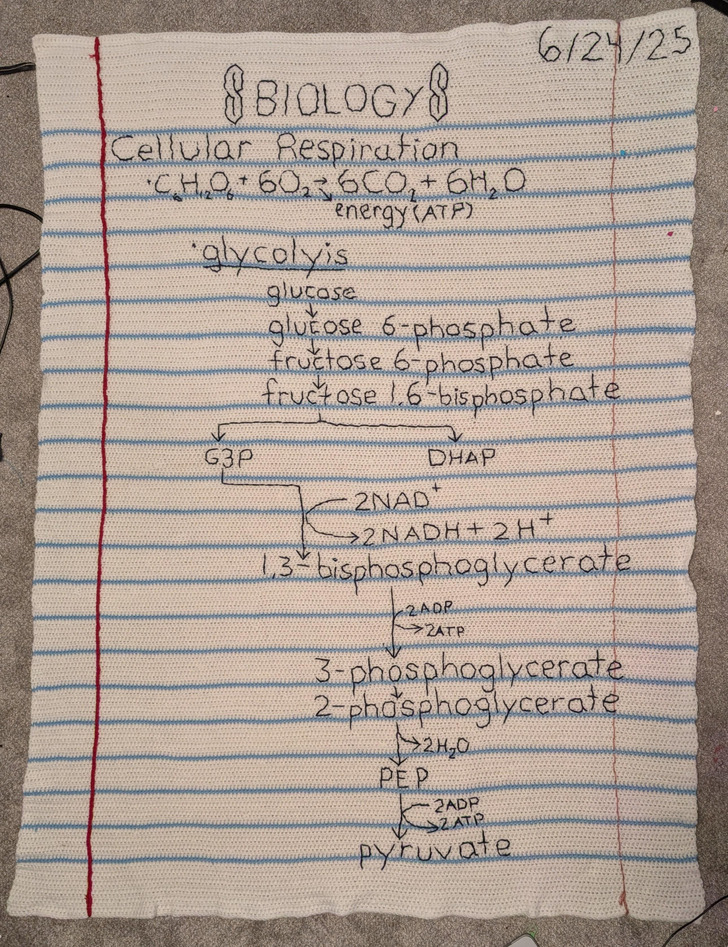 6/24/25
BIOLOGY
Cellular Respiration
·C₆H₁₂O₆ + 6O₂ ⇄ 6CO₂ + 6H₂O
energy (ATP)
·glycolyis
glucose
glucose 6-phosphate
fructose 6-phosphate
fructose 1,6-bisphosphate
G3P DHAP
2NAD⁺
2NADH + 2H⁺
1,3-bisphosphoglycerate
2ADP
2ATP
3-phosphoglycerate
2-phosphoglycerate
2H₂O
PEP
2ADP
2ATP
pyruvate